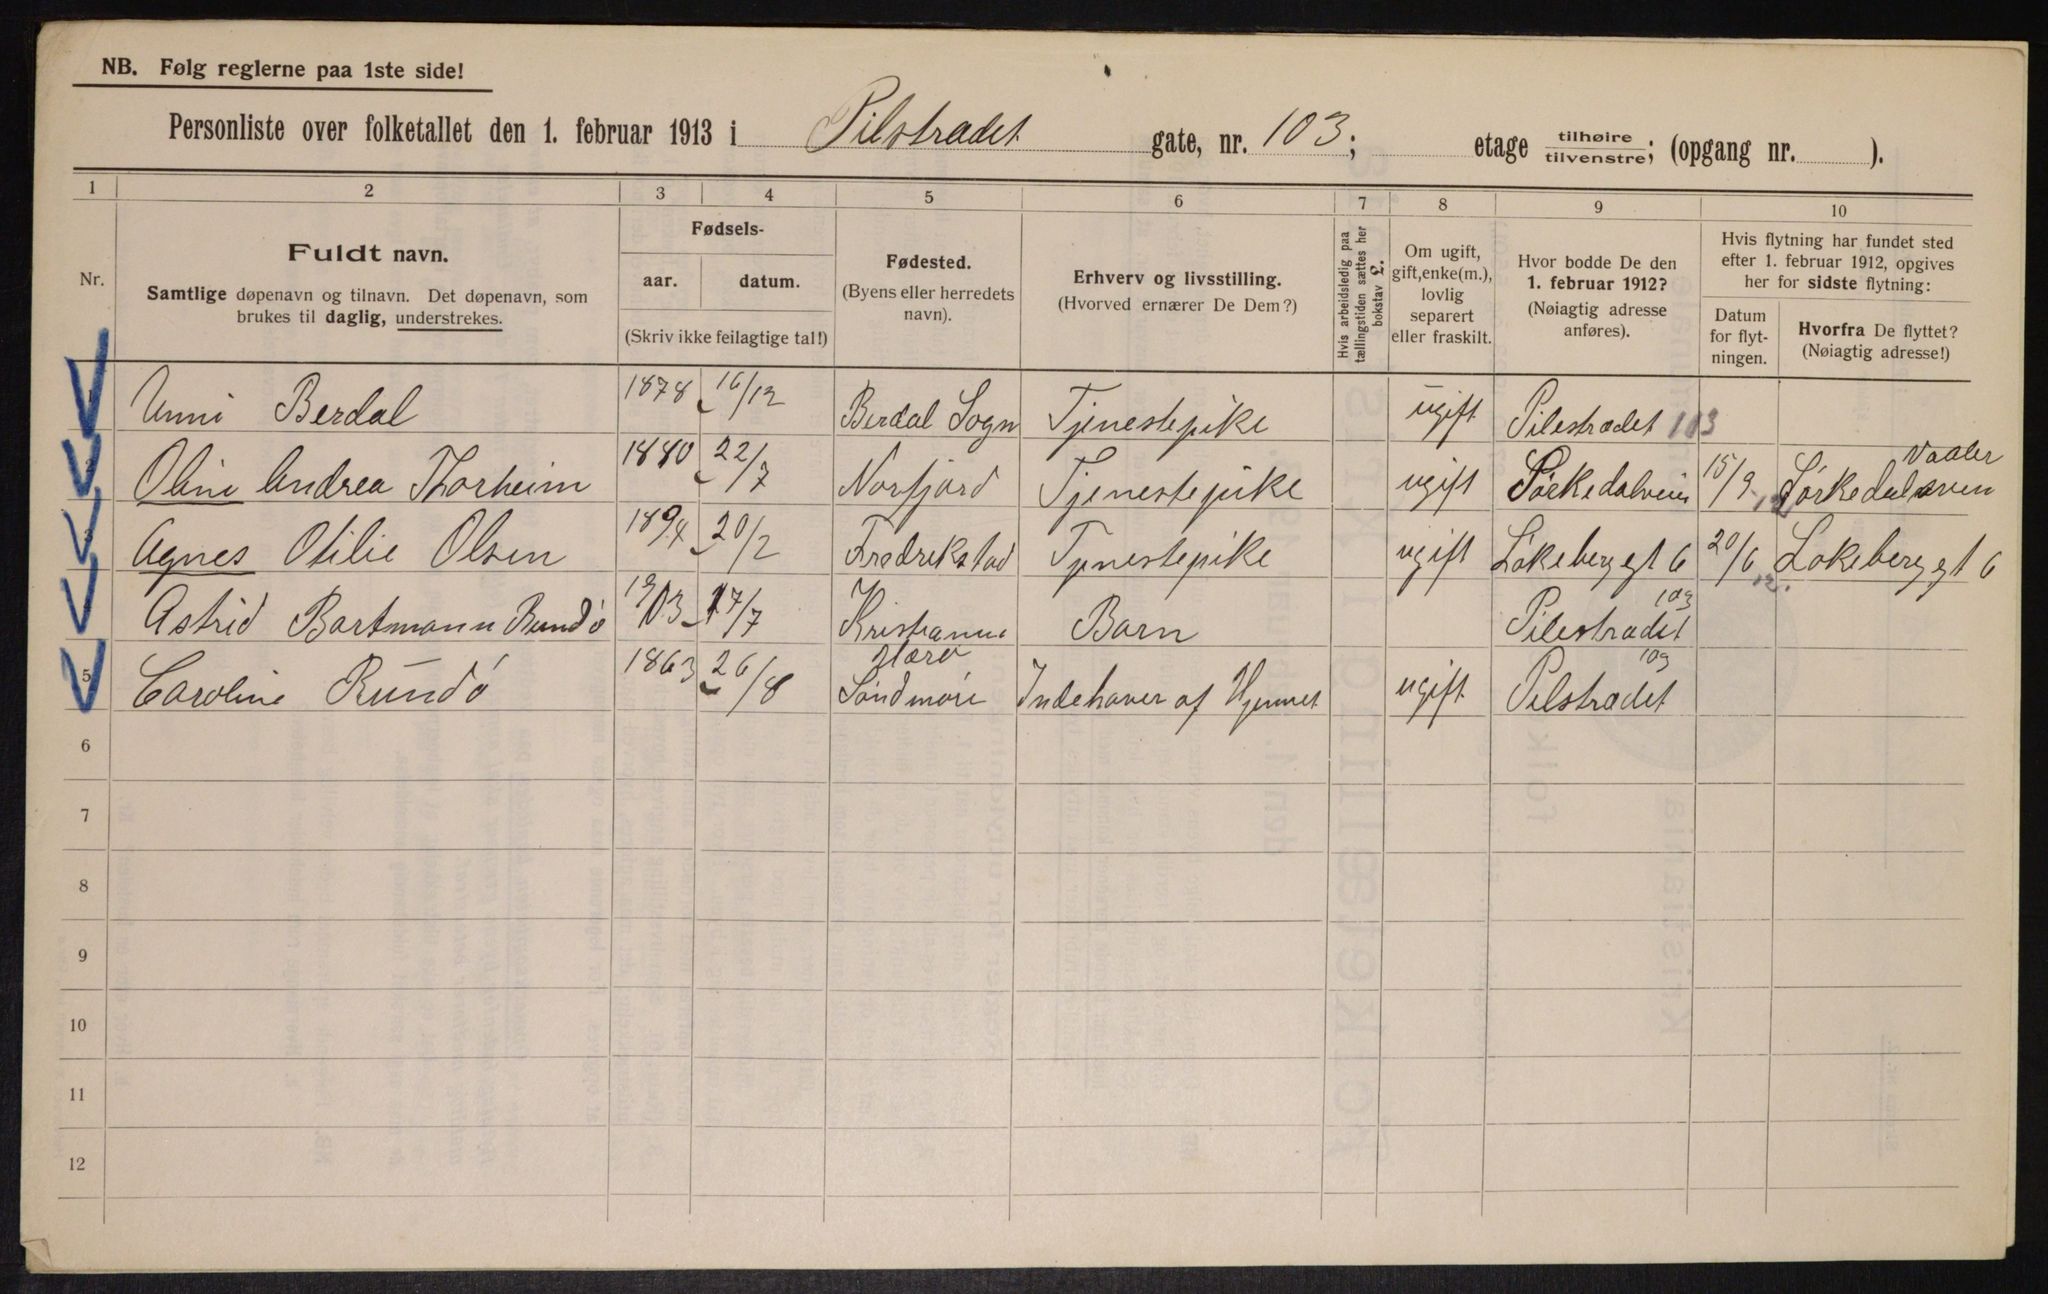 NB. Følg reglerne paa 1ste side!
Personliste over folketallet den 1. februar 1913 i Pilstradet gate, nr. 103; etage tilhøire/tilvenstre; (opgang nr. ).
1 2 3 4 5 6 7 8 9 10
Nr.
Fuldt navn.
Samtlige døpenavn og tilnavn. Det døpenavn, som
brukes til daglig, understrekes.
Fødsels-
aar. datum.
(Skriv ikke feilagtige tal!)
Fødested.
(Byens eller herredets
navn).
Erhverv og livsstilling.
(Hvorved ernærer De Dem?)
Hvis arbeidsledig paa
tællingstiden sættes her
bokstav £.
Om ugift,
gift, enke(m.),
lovlig
separert
eller fraskilt.
Hvor bodde De den
1. februar 1912?
(Nøiagtig adresse
anføres).
Hvis flytning har fundet sted
efter 1. februar 1912, opgives
her for sidste flytning:
Datum
for flyt-
ningen.
Hvorfra De flyttet?
(Nøiagtig adresse!)
1 Unni Berdal 1878 16/12 Berdal Sogn Tjenestepike ugift Pilestradet 103
2 Oline Andrea Thorheim 1880 22/7 Norfjord Tjenestepike ugift Sørkedalveien 15/9 12 Sørkedalsveien Vaaler
3 Agnes Otilie Olsen 1894 20/2 Fredrikstad Tjenestepike ugift Løkeberg gt 6 20/6 12. Løkeberg gt 6
4 Astrid Bartmann Rundö 1903 17/7 Kristiania Barn Pilestradet 103
5 Caroline Rundö 1863 26/8 Harø Søndmøre Indehaver af Hjemmet ugift Pilstradet 103
6
7
8
9
10
11
12